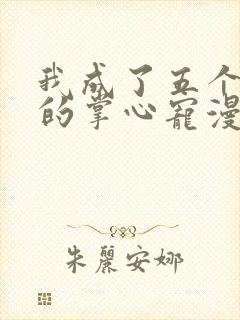 我成了五个
的掌心宠漫
朱丽安娜